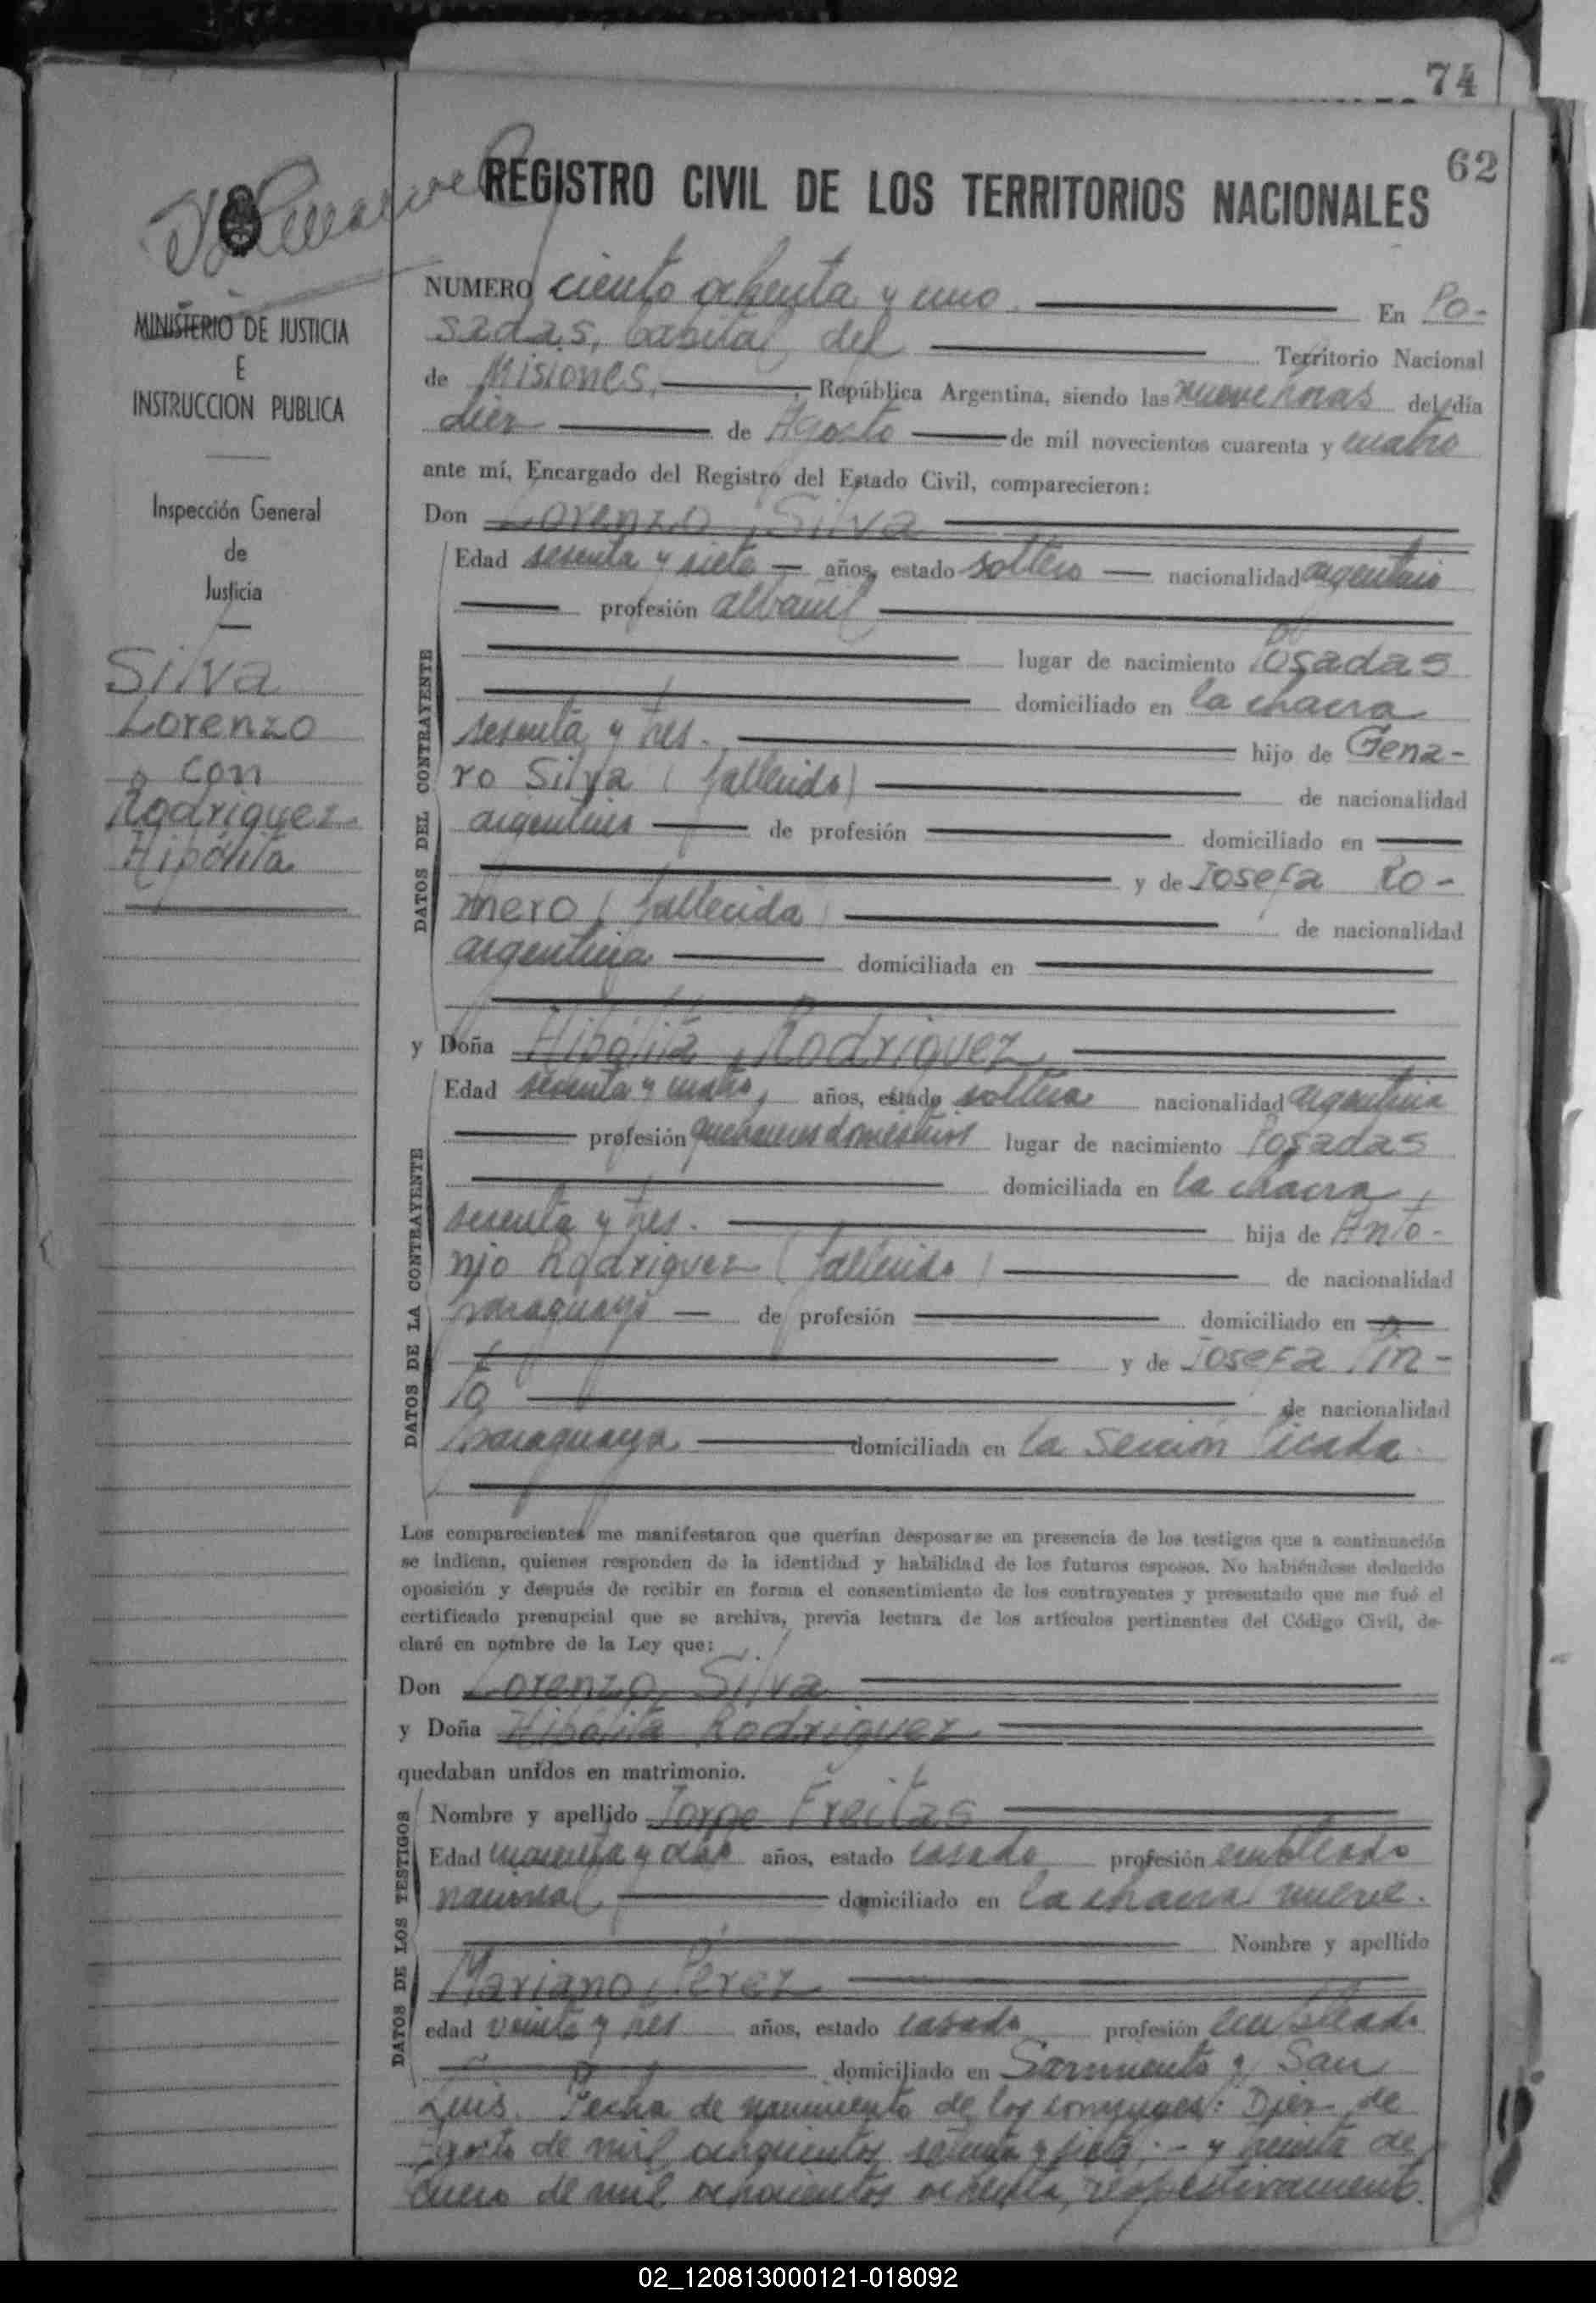 74
62
REGISTRO CIVIL DE LOS TERRITORIOS NACIONALES
MINISTERIO DE JUSTICIA
E
INSTRUCCION PUBLICA
Inspección General
de
Justicia
Silva
Lorenzo
con
Rodriguez
Hipólita
NUMERO ciento ochenta y uno. En Po-
sadas, Capital del Territorio Nacional
de Misiones, República Argentina, siendo las nueve horas del día
diez de Agosto de mil novecientos cuarenta y cuatro
ante mí, Encargado del Registro del Estado Civil, comparecieron:
Don Lorenzo Silva
DATOS DEL CONTRAYENTE
Edad sesenta y siete años, estado soltero nacionalidad argentino
profesión albañil
lugar de nacimiento Posadas
domiciliado en la chacra
sesenta y tres. hijo de Gena-
ro Silva (fallecido) de nacionalidad
argentino de profesión domiciliado en
y de Josefa Ro-
mero (fallecida) de nacionalidad
argentina domiciliada en
y Doña Hipólita Rodriguez
DATOS DE LA CONTRAYENTE
Edad sesenta y cuatro, años, estado soltera nacionalidad argentina
profesión quehaceres domésticos lugar de nacimiento Posadas
domiciliada en la chacra
sesenta y tres. hija de Anto-
nio Rodriguez (fallecido) de nacionalidad
paraguayo de profesión domiciliado en
y de Josefa Pin-
to de nacionalidad
paraguaya domiciliada en la Sección Picada
Los comparecientes me manifestaron que querían desposarse en presencia de los testigos que a continuación
se indican, quienes responden de la identidad y habilidad de los futuros esposos. No habiéndose deducido
oposición y después de recibir en forma el consentimiento de los contrayentes y presentado que me fué el
certificado prenupcial que se archiva, previa lectura de los artículos pertinentes del Código Civil, de-
claré en nombre de la Ley que:
Don Lorenzo Silva
y Doña Hipólita Rodriguez
quedaban unidos en matrimonio.
DATOS DE LOS TESTIGOS
Nombre y apellido Jorge Freitas
Edad cuarenta y ocho años, estado casado profesión empleado
nacional domiciliado en la chacra nueve.
Nombre y apellido
Mariano Pérez
edad veinte y tres años, estado casado profesión empleado
domiciliado en Sarmiento y San
Luis. Fecha de nacimiento de los conyuges: Diez de
Agosto de mil ochocientos setenta y siete; - y treinta de
Enero de mil ochocientos ochenta, respectivamente.
02_120813000121-018092